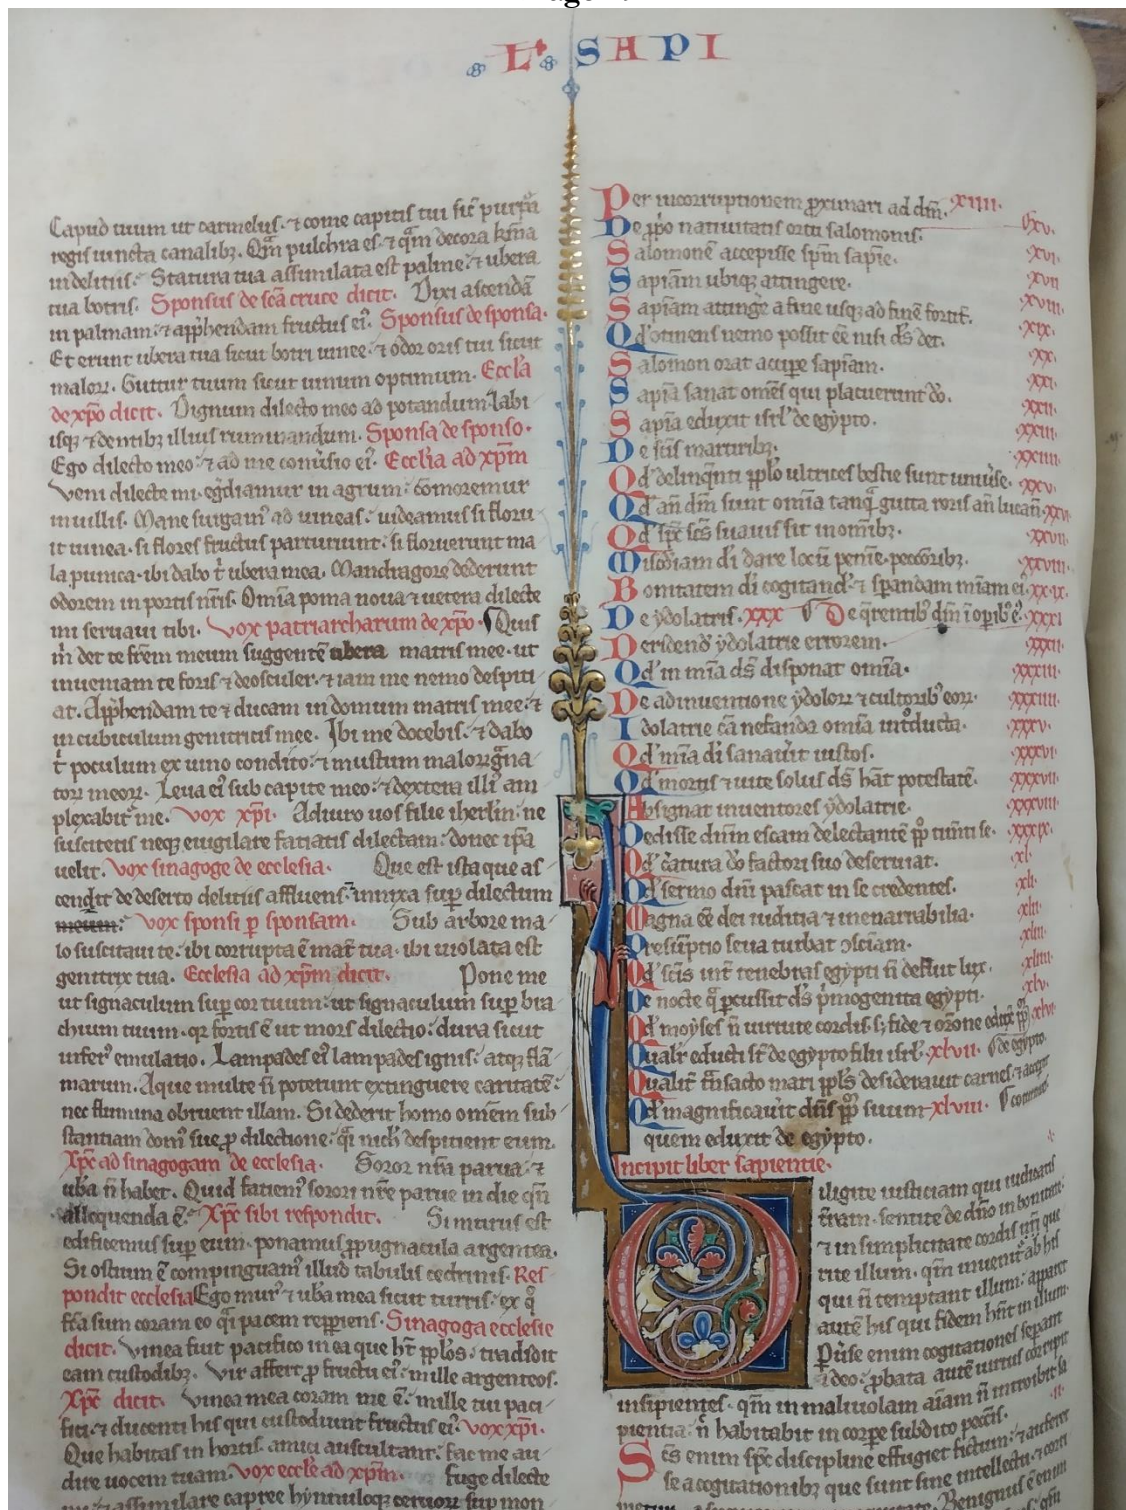 L. SAPI
Capud tuum ut carmelus. ⁊ come capitis tui sic̄ purpᷓa
regis uincta canalibꝫ. Qm̄ pulchra es. ⁊ qm̄ decora kr̄ma
in delitiis. Statura tua assimilata est palme. ⁊ ubera
tua botris. Sponsus de sc̄a cruce dicit. Dixi ascendā
in palmam. ⁊ app̄hendam fructus eiꝰ. Sponsus de sponsa.
Et erunt ubera tua sicut botri uinee. ⁊ odor oris tui sicut
maloꝝ. Guttur tuum sicut uinum optimum. Eccl̄a
de xp̄o dicit. Dignum dilecto meo ad potandum. labi
isqꝫ ⁊ dentibꝫ illius ruminandum. Sponsa de sponso.
Ego dilecto meo. ⁊ ad me conūsio eiꝰ. Eccl̄ia ad xp̄m
Veni dilecte mi. eḡdiamur in agrum. cōmoremur
in uillis. Mane surgamꝰ ad uineas. uideamus si floru
it uinea. si flores fructus parturiunt. si floruerunt ma
la punica. ibi dabo t̄ ubera mea. Mandragore dederunt
odorem in portis nr̄is. Om̄ia poma noua ⁊ uetera dilecte
mi seruaui tibi. Vox patriarcharum de xp̄o. Quis
m̄ det te fr̄em meum suggentē ubera matris mee. ut
inueniam te foris ⁊ deosculer. ⁊ iam me nemo despiti
at. App̄hendam te ⁊ ducam in domum matris mee. ⁊
in cubiculum genitricis mee. Ibi me docebis. ⁊ dabo
t̄ poculum ex uino condito. ⁊ mustum maloꝝ gᷓna
toꝝ meoꝝ. Leua eiꝰ sub capite meo. ⁊ dextera illiꝰ am
plexabit̄ me. Vox xp̄i. Adiuro uos filie ihrl̄m. ne
suscitetis neqꝫ euigilare fatiatis dilectam. donec ip̄a
uelit. Vox sinagoge de ecclesia. Que est ista que as
cendit de deserto delitiis affluens. innixa sup̄ dilectum
meum. Vox sponsi ꝑ sponsam. Sub arbore ma
lo suscitaui te. ibi corrupta ē mat̄ tua. ibi uiolata est
genitrix tua. Ecclesia ad xp̄m dicit. Pone me
ut signaculum sup̄ cor tuum. ut signaculum sup̄ bra
chium tuum. qꝛ fortis ē ut mors dilectio. dura sicut
inferꝰ emulatio. Lampades eiꝰ lampades ignis. atqꝫ flā
marum. Aque multe n̄ poterunt extinguere caritatē.
nec flumina obruent illam. Si dederit homo om̄em sub
stantiam domꝰ sue ꝓ dilectione. qᷓ nichꝉ despitient eum.
Xp̄c ad sinagogam de ecclesia. Soror nr̄a parua. ⁊
ub̄a n̄ habet. Quid fatiemꝰ sorori nr̄e parue in die qn̄
allequenda ē. Xp̄c sibi respondit. Si murus est
edificemus sup̄ eum. ꝓpugnacula argentea.
Si ostium ē compinguamꝰ illud tabulis cedrinis. Res
pondit ecclesia Ego murꝰ ⁊ ub̄a mea sicut turris. ex qͦ
fc̄a sum coram eo qᷓi pacem repp̄iens. Sinagoga ecclesie
dicit. Vinea fuit pacifico in ea que h̄t pp̄los. tradidit
eam custodibꝫ. Vir affert ꝓ fructu eiꝰ. mille argenteos.
Xp̄c dicit. Vinea mea coram me ē. mille tui paci
fici. ⁊ ducenti his qui custodiunt fructus eiꝰ. Vox xp̄i.
Que habitas in hortis. amici auscultant. fac me au
dire uocem tuam. Vox eccl̄e ad xp̄m. Fuge dilecte
Per incorruptionem ꝓximari ad dm̄. xiiii.
De ꝓpͦo natiuitatis ortu salomonis. xv.
Salomonē accepisse sp̄m sapīe. xvi.
Sapīam ubiqꝫ attingere. xvii
Sapīam attinge᷑ a fine usqꝫ ad finē fortit̄. xviii.
Qd̓ otinens nemo possit eē nisi ds̄ det. xix.
Salomon orat accipe᷑ sapīam. xx.
Sapīa sanat omēs qui placuerunt dō. xxi.
Sapīa eduxit isrꝉ de egypto. xxii.
De sc̄is martiribꝫ. xxiii.
Qd̓ delinqn̄ti pp̄lo ultrices bestie sunt inmis̄se. xxv.
Qd̓ an̄ dm̄ sunt om̄ia tanqᷓ gutta roris an̄ lucan̄. xxvi
Qd̓ sp̄c sc̄s suauis sit in om̄ibꝫ. xxvii.
Misc̄diam di᷑ dare locū penīe. peccōribꝫ. xxviii.
Bonitatem di᷑ cogitandꝰ. ⁊ sperandam mīam eiꝰ. xxix.
De ydolatris. xxx De qr̄entibꝰ dm̄ ī oꝑibꝰ eꝰ. xxxi
Deridendꝰ ydolatrie errorem. xxxii.
Qd̓ in mīa ds̄ disponat om̄ia. xxxiii.
De adinuentione ydoloꝝ ⁊ cultoribꝰ eoꝝ. xxxiiii.
Idolatrie cā nefanda om̄ia int̄ducta. xxxv.
Qd̓ mīa di᷑ sanau̓it iustos. xxxvi.
Qd̓ mortis ⁊ uite solus ds̄ hāt potestatē. xxxvii.
Absignat inuentores ydolatrie. xxxviii.
Dedisse dn̄m escam delectantē pp̄ timēti se. xxxix.
Qd̓ cᷓatura dō factori suo deseruiat. xl.
Qd̓ sermo dn̄i pascat in se credentes. xli.
Magna eē dei iuditia ⁊ inenarrabilia. xlii
Presūptio seua turbat ↄsciam. xliii
Qd̓ sc̄is int̄ tenebras egypti n̄ defuit lux. xliiii
De nocte qᷓ ꝑcussit ds̄ pͥmogenita egypti. xlv.
Qd̓ moyses n̄ uirtute corꝑis sꝫ fide ⁊ or̄one eduxit pp̄m xlvi
Qualit̄ educti st̄ de egypto filii isrꝉ. xlvii. de egypto.
Qualit̄ tn̄sacto mari pp̄ls desiderauit carnes. ⁊ accepit
Qd̓ magnificau̓it dn̄s pp̄m suum xlviii. coturnices
quem eduxit de egypto.
Incipit liber sapientie.
Diligite iusticiam qui iudicatis
t̄ram. sentite de dn̄o in bonitate.
⁊ in simplicitate cordis que
rite illum. qm̄ inuenit̄ ab his
qui n̄ temptant illum. apparet
autē his qui fidem hn̄t in illum.
Puīse enim cogitationes sepant
a deo. ꝓbata autē uirtus corripit
insipientes. qm̄ in maliuolam aīam n̄ introibit sa
pientia. n̄ habitabit in corpe subdito pecc̄is. ii.
Sc̄s enim sp̄c discipline effugiet fictum. ⁊ auferet
se a cogitationibꝫ que sunt sine intellectu. ⁊ corri